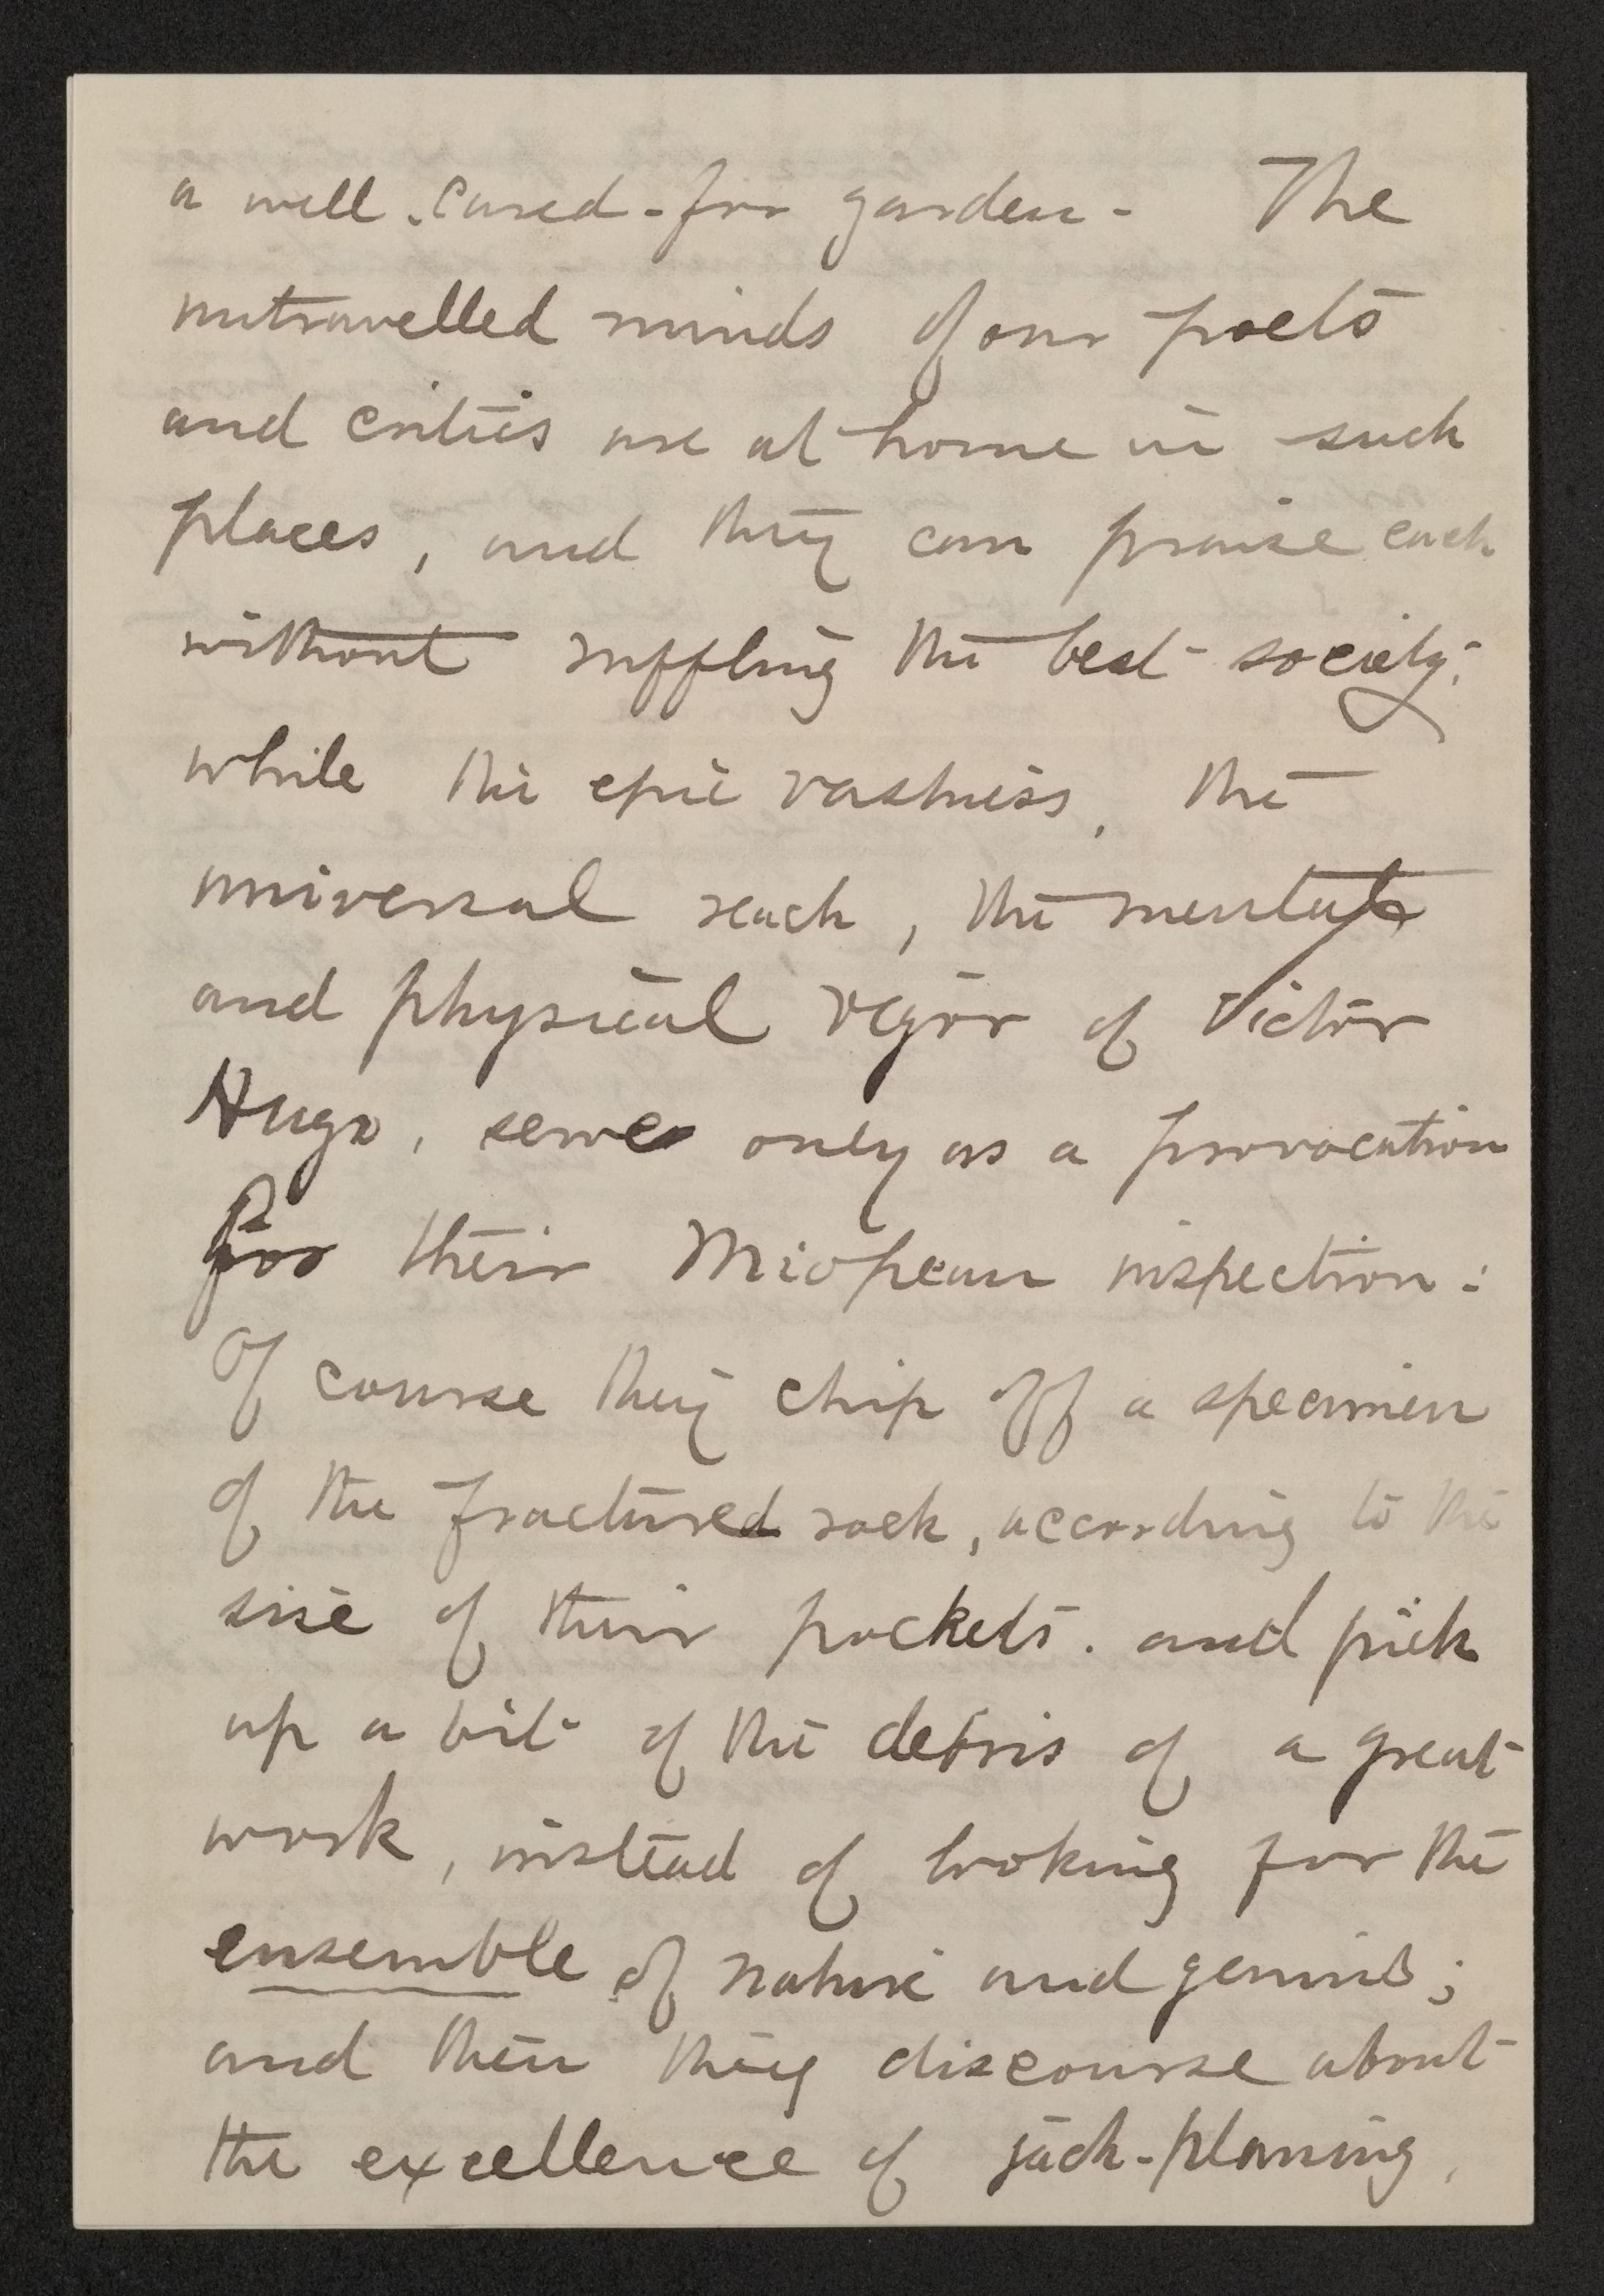 a well-cared-for garden - The
untravelled minds of our poets
and critics are at home in such
places, and they can praise each
without ruffling the best society;
while the epic vastness, the
universal reach, the mental
and physical vigor of Victor
Hugo, serve only as a provocation
for their Miopean inspection:
Of course they chip off a specimen
of the fractured rock, according to the
size of their pockets. and pick
up a bit of the debris of a great
work, instead of looking for the
ensemble of nature and genius;
and then they discourse about
the excellence of jack-planing,